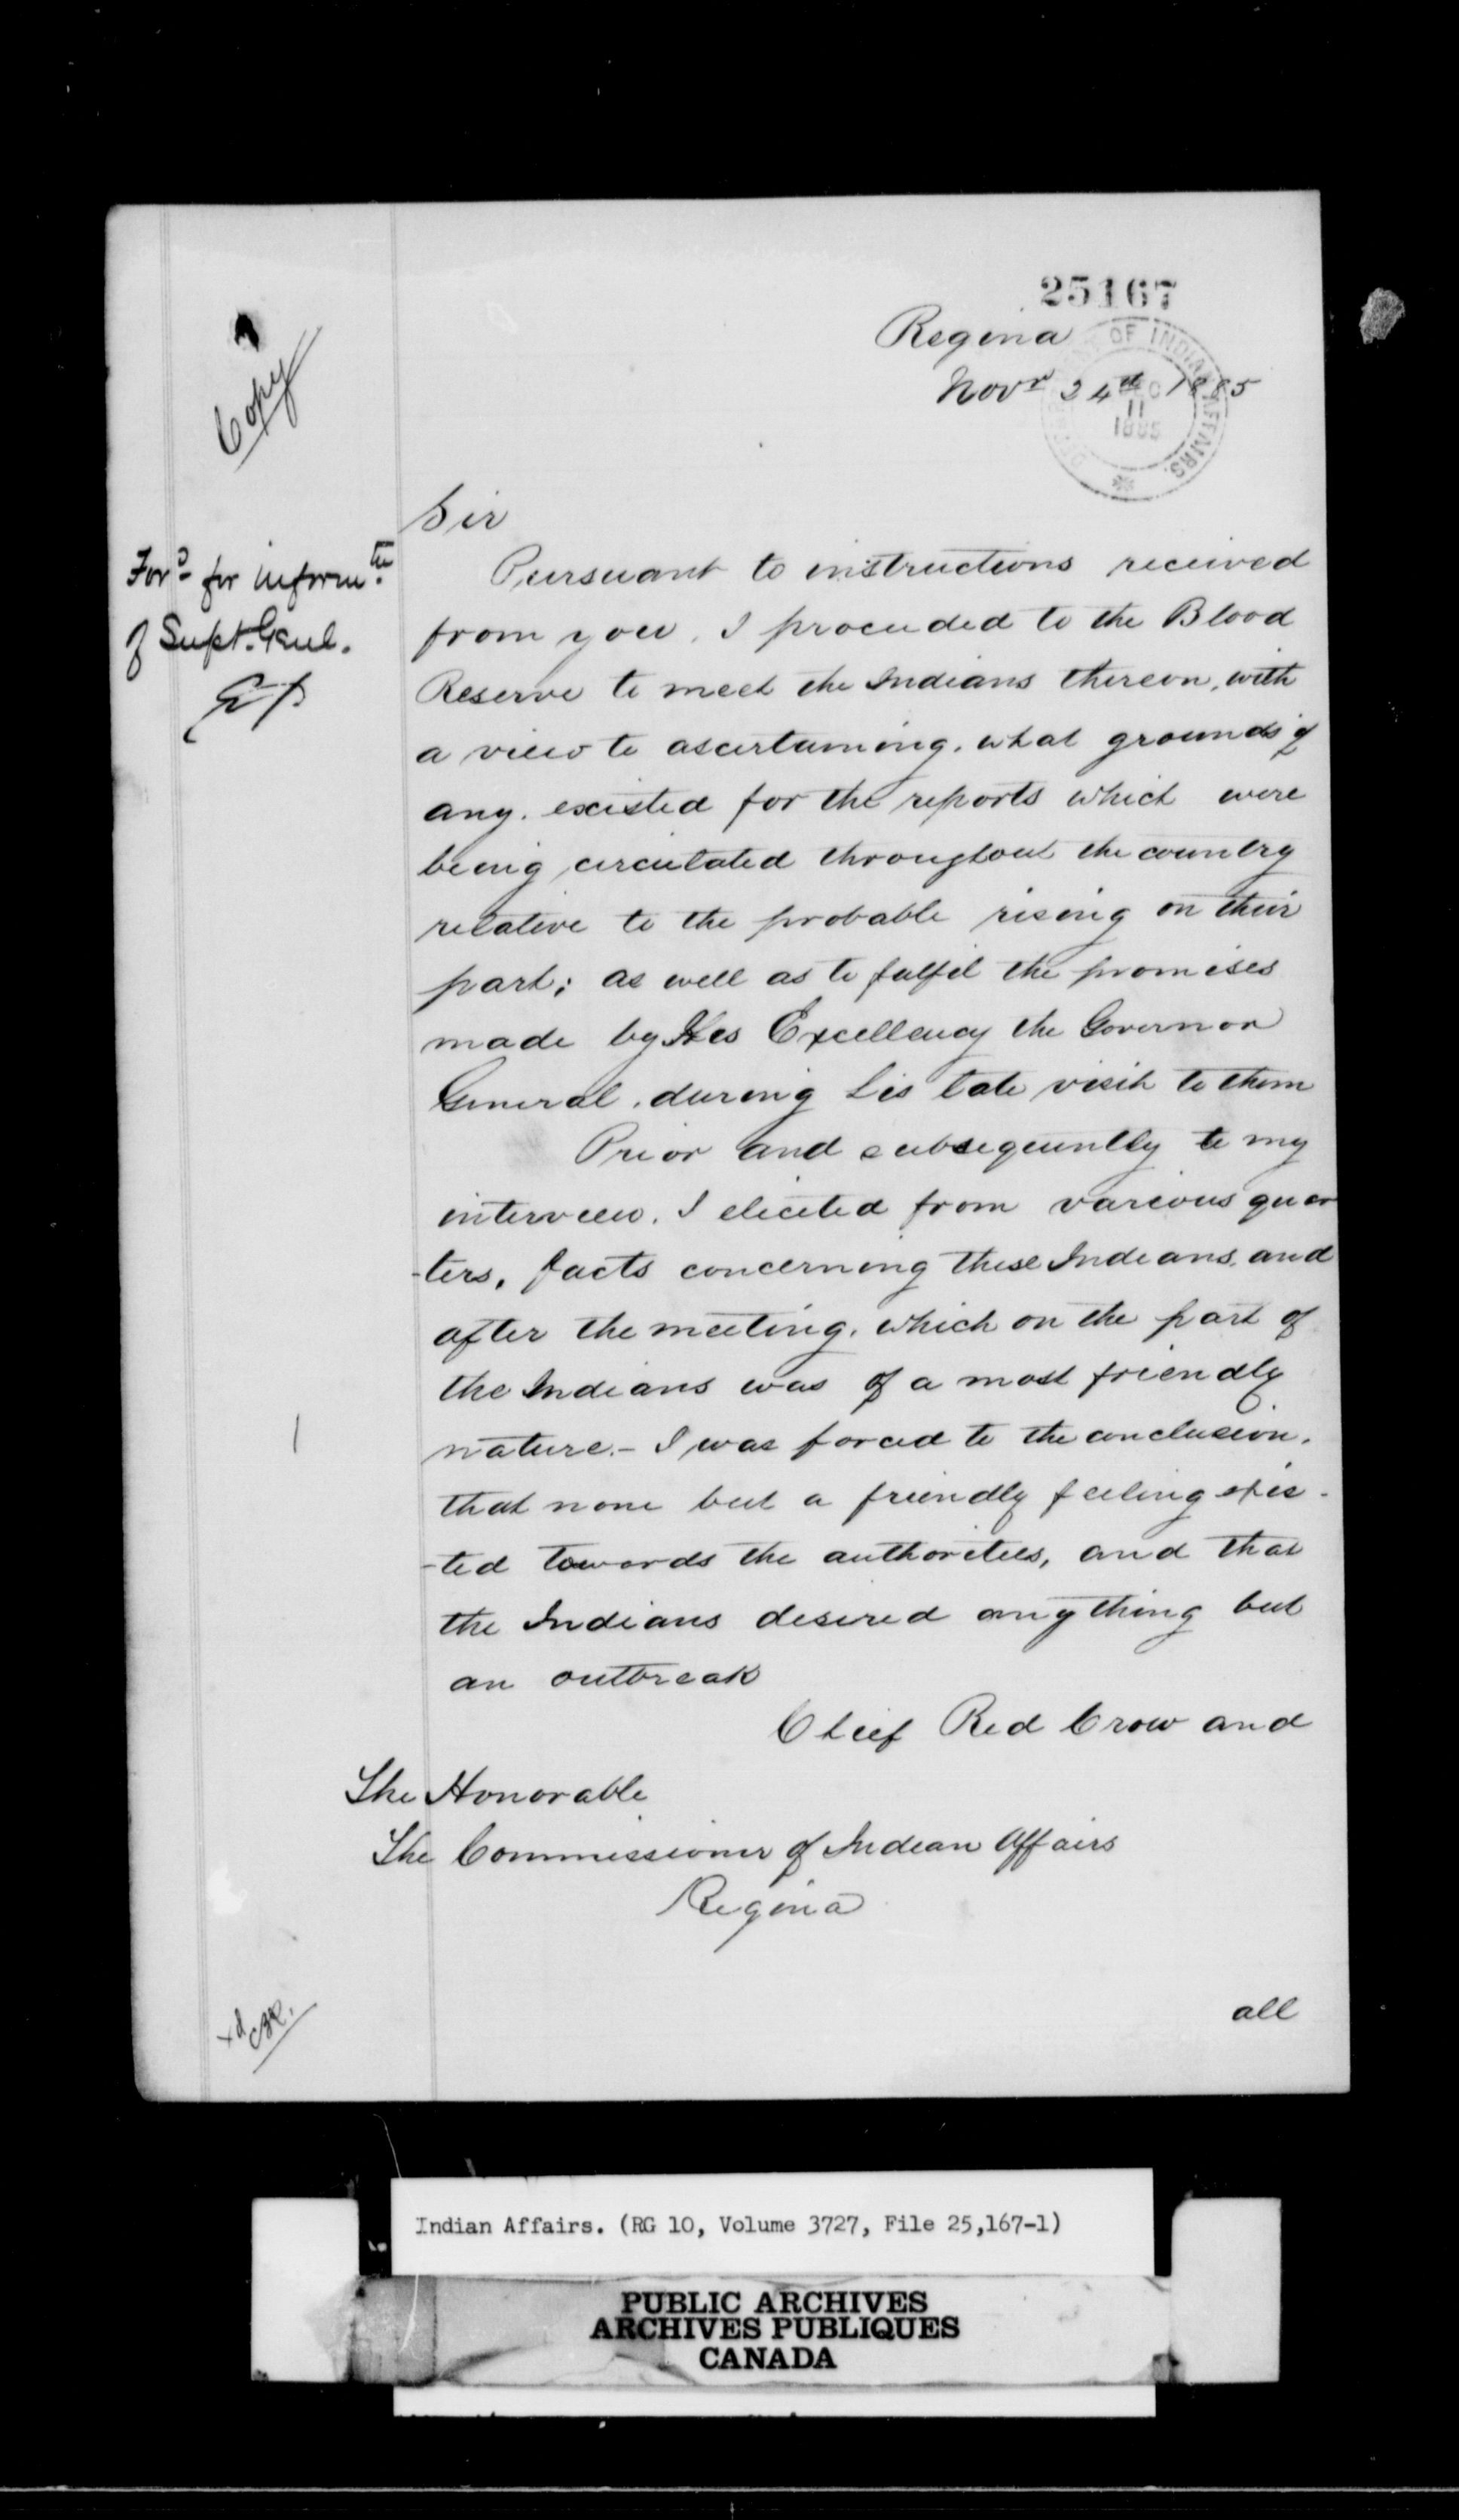 25167
Regina
Novr 24th 1885
DEPT. OF INDIAN AFFAIRS.
DEC
11
1885
Copy
Ford for informtn
of Supt. Genl.
Sir
Pursuant to instructions received
from you, I proceeded to the Blood
Reserve to meet the Indians thereon, with
a view to ascertaining, what grounds if
any, existed for the reports which were
being circulated throughout the country
relative to the probable rising on their
part; as well as to fulfil the promises
made by His Excellency the Governor
General, during his late visit to them
Prior and subsequently to my
interview, I elicited from various quar
-ters, facts concerning these Indians, and
after the meeting, which on the part of
the Indians was of a most friendly
nature.- I was forced to the conclusion,
that none but a friendly feeling exis-
-ted towards the authorities, and that
the Indians desired anything but
an outbreak
Chief Red Crow and
The Honorable
The Commissioner of Indian Affairs
Regina
all
Indian Affairs. (RG 10, Volume 3727, File 25,167-1)
PUBLIC ARCHIVES
ARCHIVES PUBLIQUES
CANADA